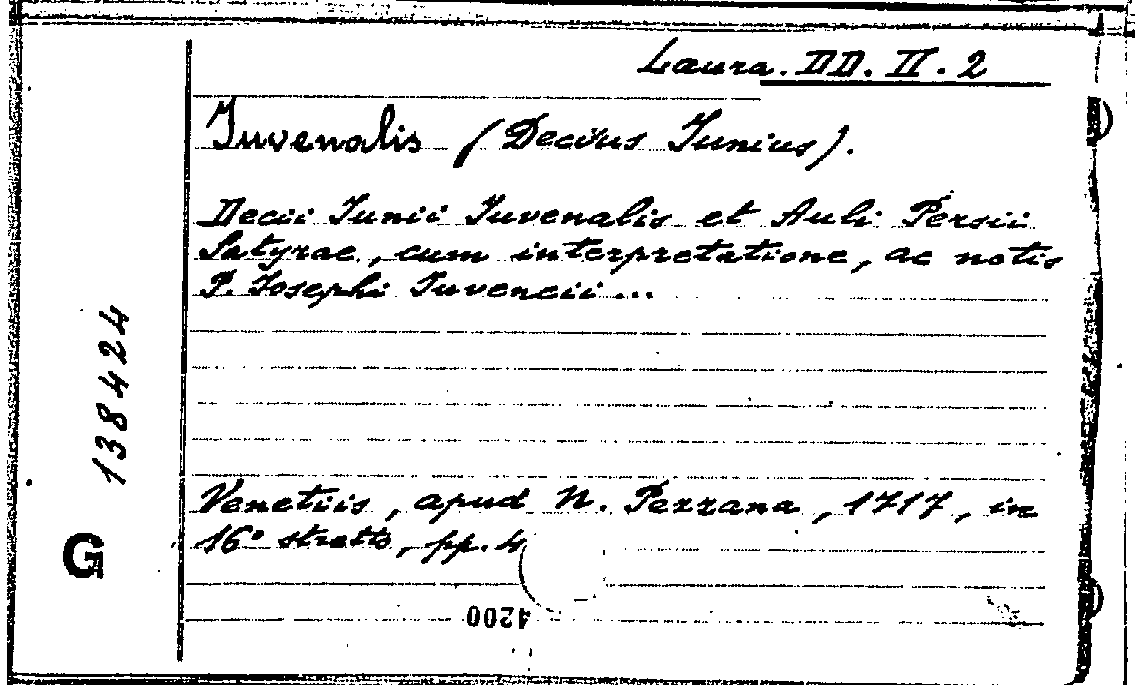 Laura. DD. II. 2
Iuvenalis (Decius Iunius).
Decii Iunii Iuvenalis et Auli Persii
Satyrae, cum interpretatione, ac notis
P. Iosephi Iuvencii...
Venetiis, apud N. Pezzana, 1717, in
16° stretto, pp. 4
138424
G
4200